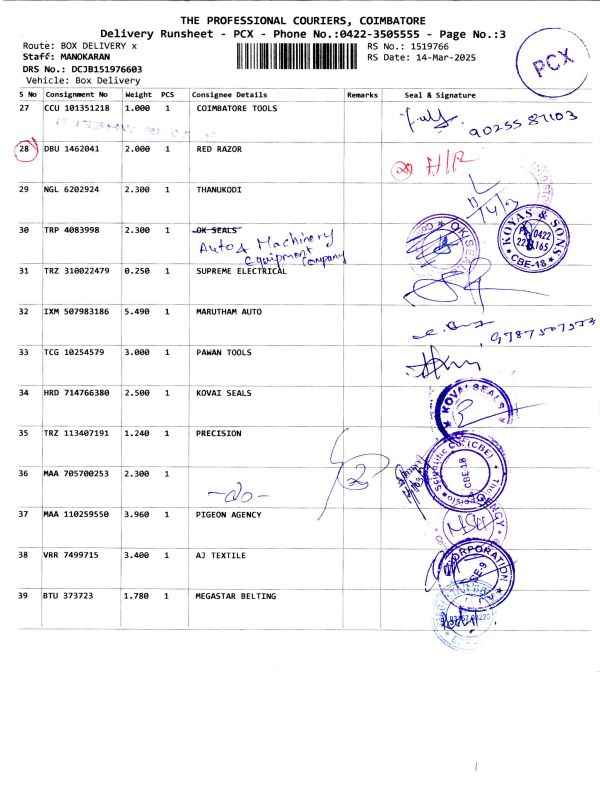 THE PROFESSIONAL COURIERS, COIMBATORE
Delivery Runsheet - PCX - Phone No.:0422-3505555 - Page No.:3
Route: BOX DELIVERY x
RS No.: 1519766
Staff: MANOKARAN
RS Date: 14-Mar-2025
DRS No.: DCJB151976603
Vehicle: Box Delivery
PCX
S No Consignment No Weight PCS Consignee Details Remarks Seal & Signature
27 CCU 101351218 1.000 1 COIMBATORE TOOLS
28 DBU 1462041 2.000 1 RED RAZOR H/R
29 NGL 6202924 2.300 1 THANUKODI
30 TRP 4083998 2.300 1 OK SEALS
Auto & Machinery
Equipment
Company
KOVAS & SONS
0422
CBE-18
31 TRZ 310022479 0.250 1 SUPREME ELECTRICAL
32 IXM 507983186 5.490 1 MARUTHAM AUTO
33 TCG 10254579 3.000 1 PAWAN TOOLS
34 HRD 714766380 2.500 1 KOVAI SEALS
KOVAI SEALS
35 TRZ 113407191 1.240 1 PRECISION
36 MAA 705700253 2.300 1
-do-
2
Scientific Co. (CBE)
CBE-18
37 MAA 110259550 3.960 1 PIGEON AGENCY
38 VRR 7499715 3.400 1 AJ TEXTILE
CORPORATION
CBE-9
39 BTU 373723 1.780 1 MEGASTAR BELTING